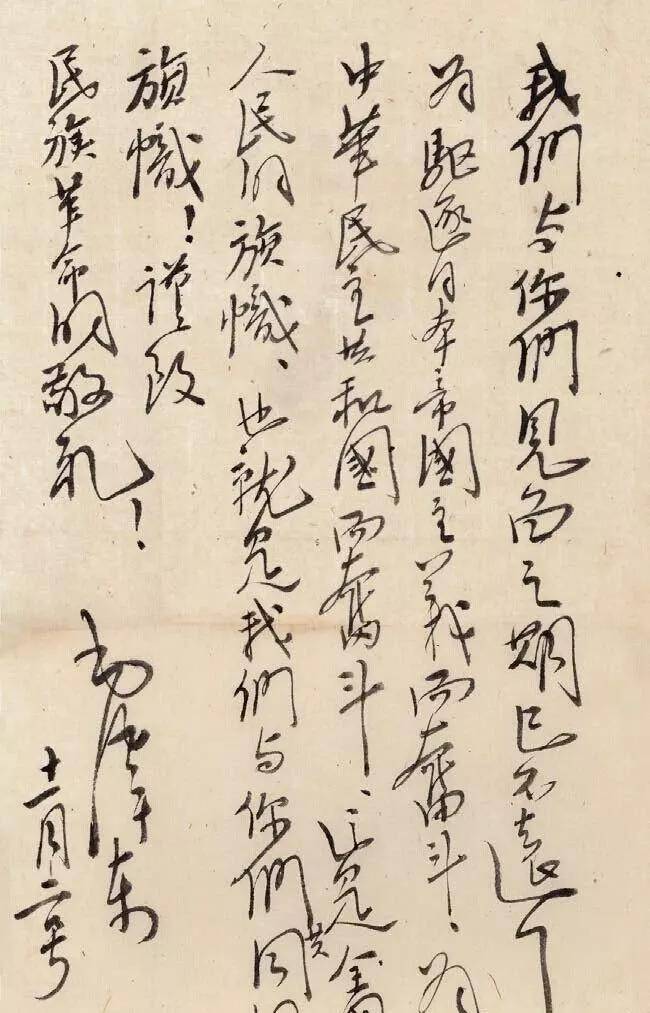 我們与你們見面之期已不遠了
为驅逐日本帝國主義而奮斗、为
中華民主共和國而奮斗、这是全
人民的旗幟、也就是我們与你們共同
旗幟！謹致
民族革命的敬礼！
毛澤东
十一月二号